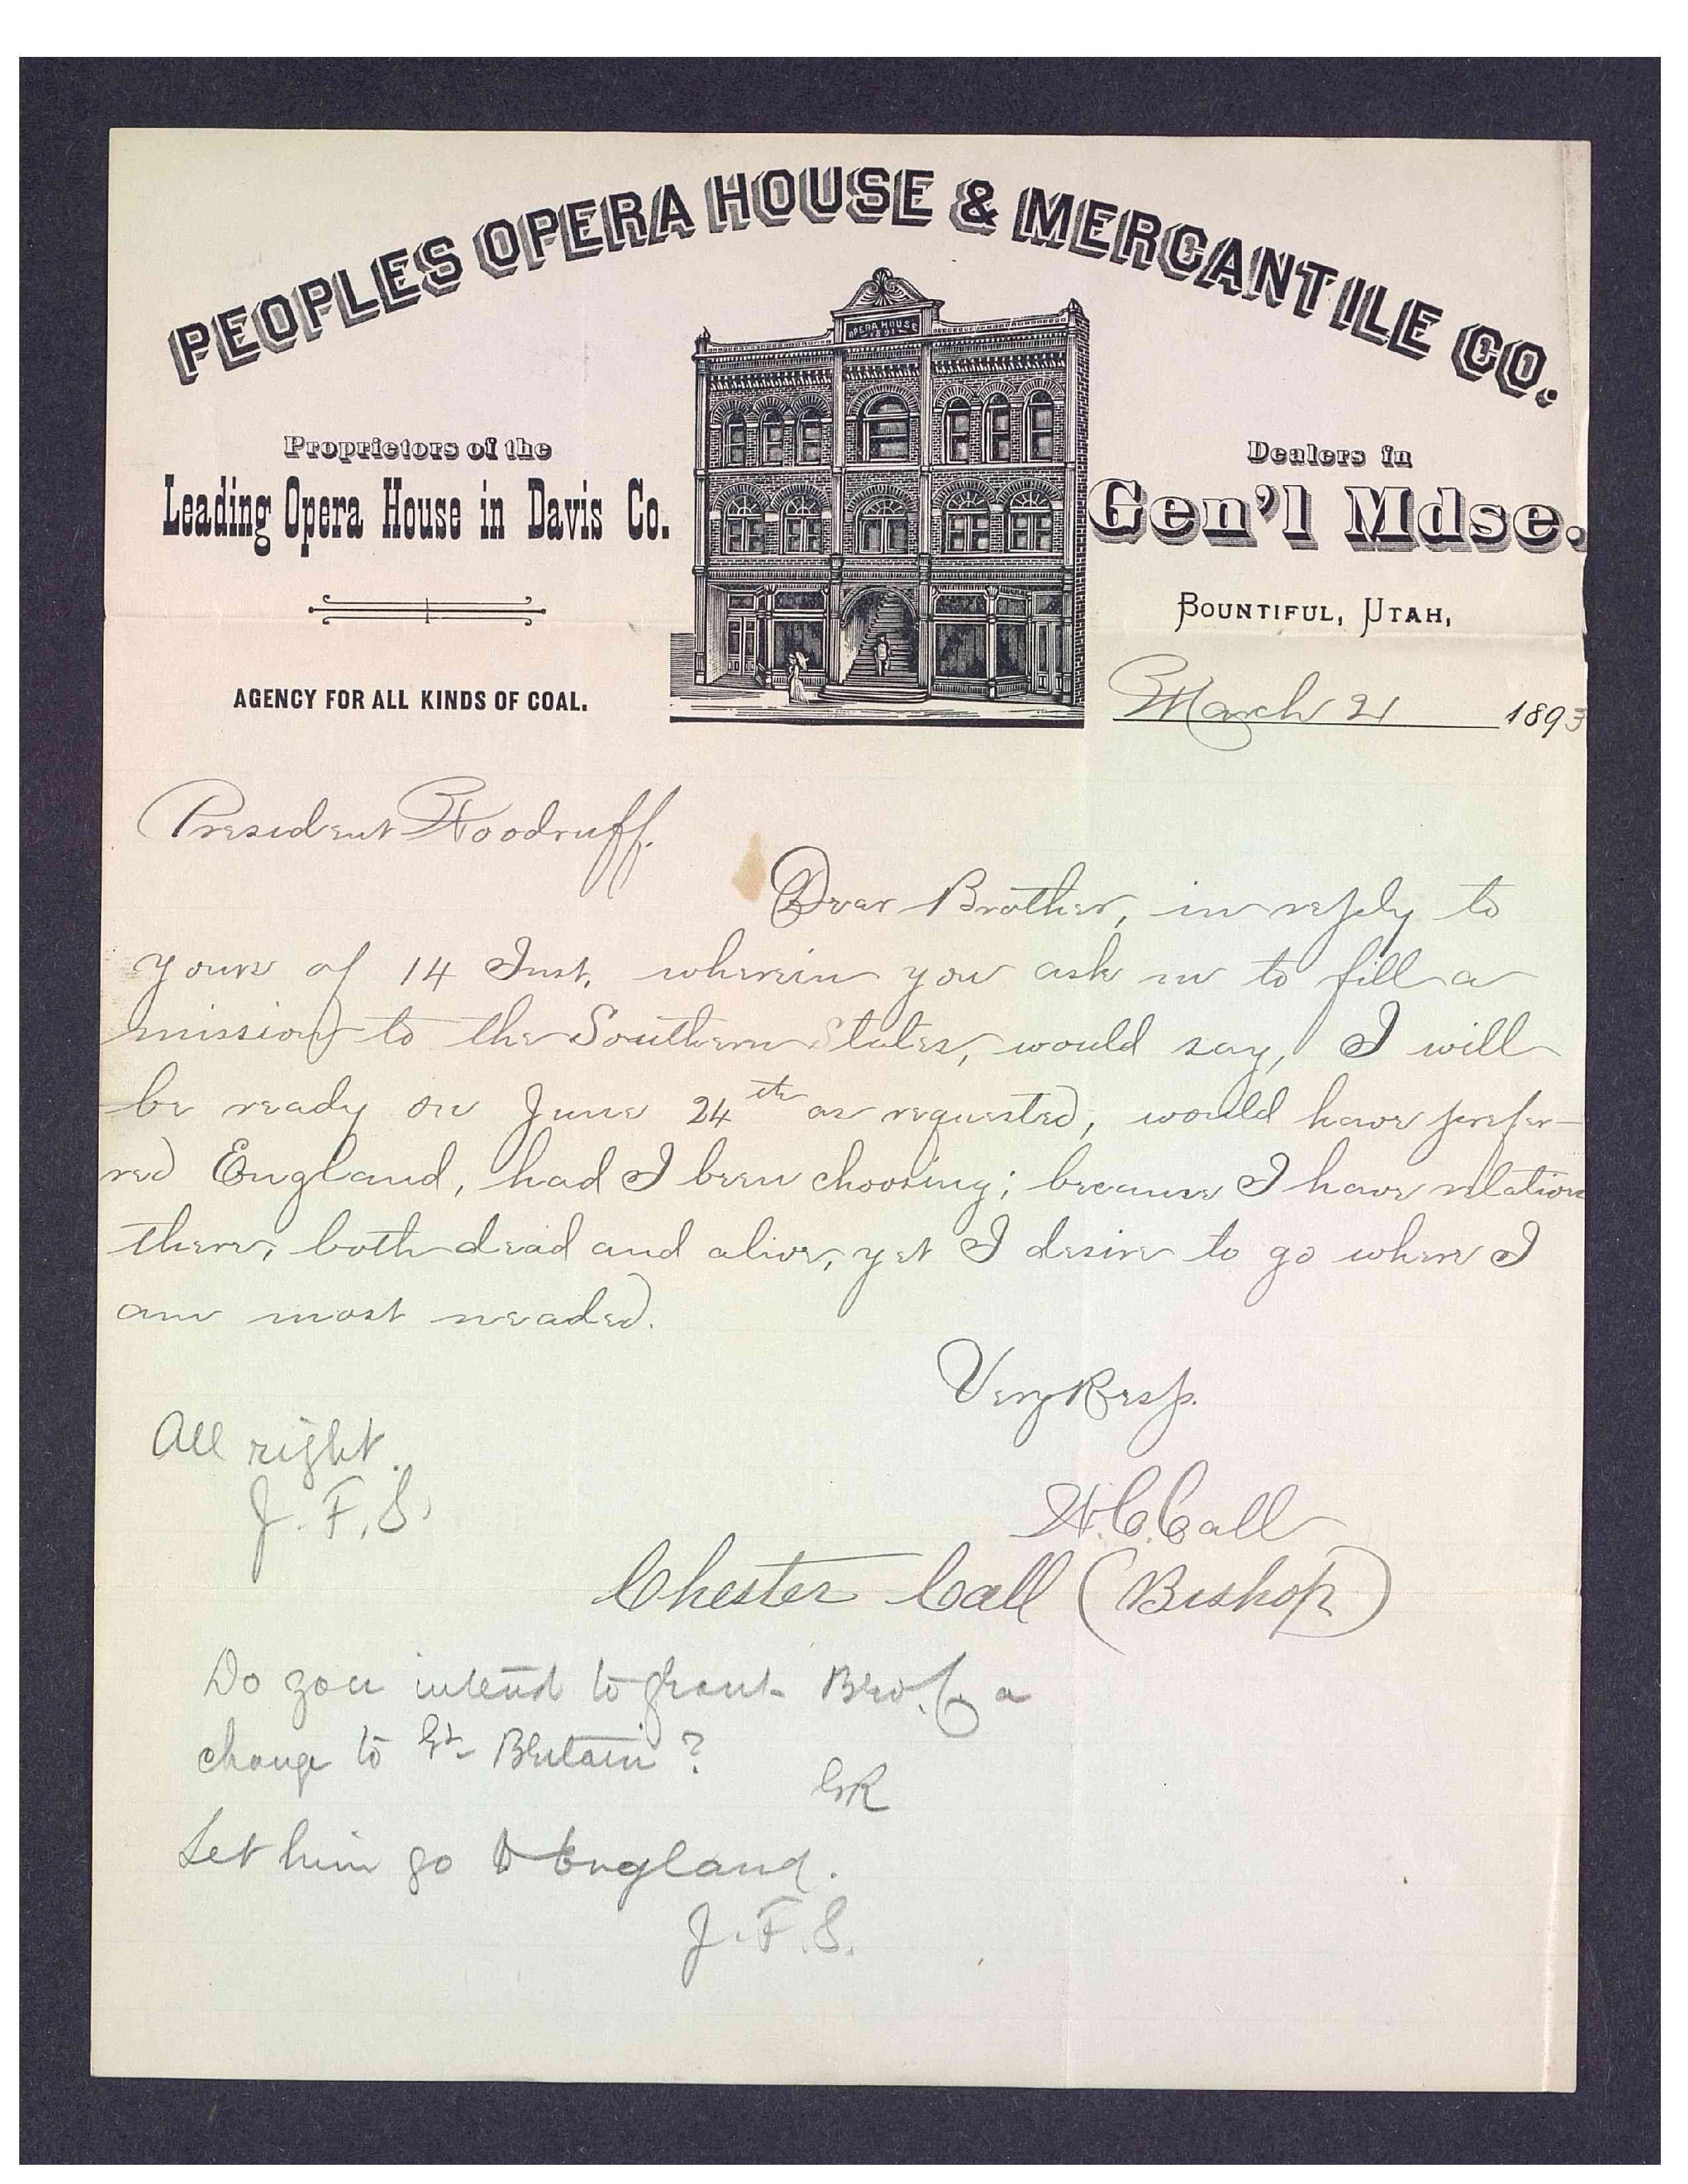 PEOPLES OPERA HOUSE & MERCANTILE CO.
OPERA HOUSE
1891
Proprietors of the
Leading Opera House in Davis Co.
AGENCY FOR ALL KINDS OF COAL.
Dealers in
Gen'l Mdse.
BOUNTIFUL, UTAH,
March 21 1893
President Woodruff.
Dear Brother, in reply to
yours of 14 Inst. wherein you ask me to fill a
mission to the Southern States, would say, I will
be ready on June 24th as requested, would have prefer-
red England, had I been choosing; because I have relation
there, both dead and alive, yet I desire to go where I
am most neaded.
Very Resp.
H. C. Call
All right.
J. F. S.
Chester Call (Bishop)
Do you intend to grant Bro. C. a
change to Gt. Britain?
GR
Let him go to England.
J. F. S.